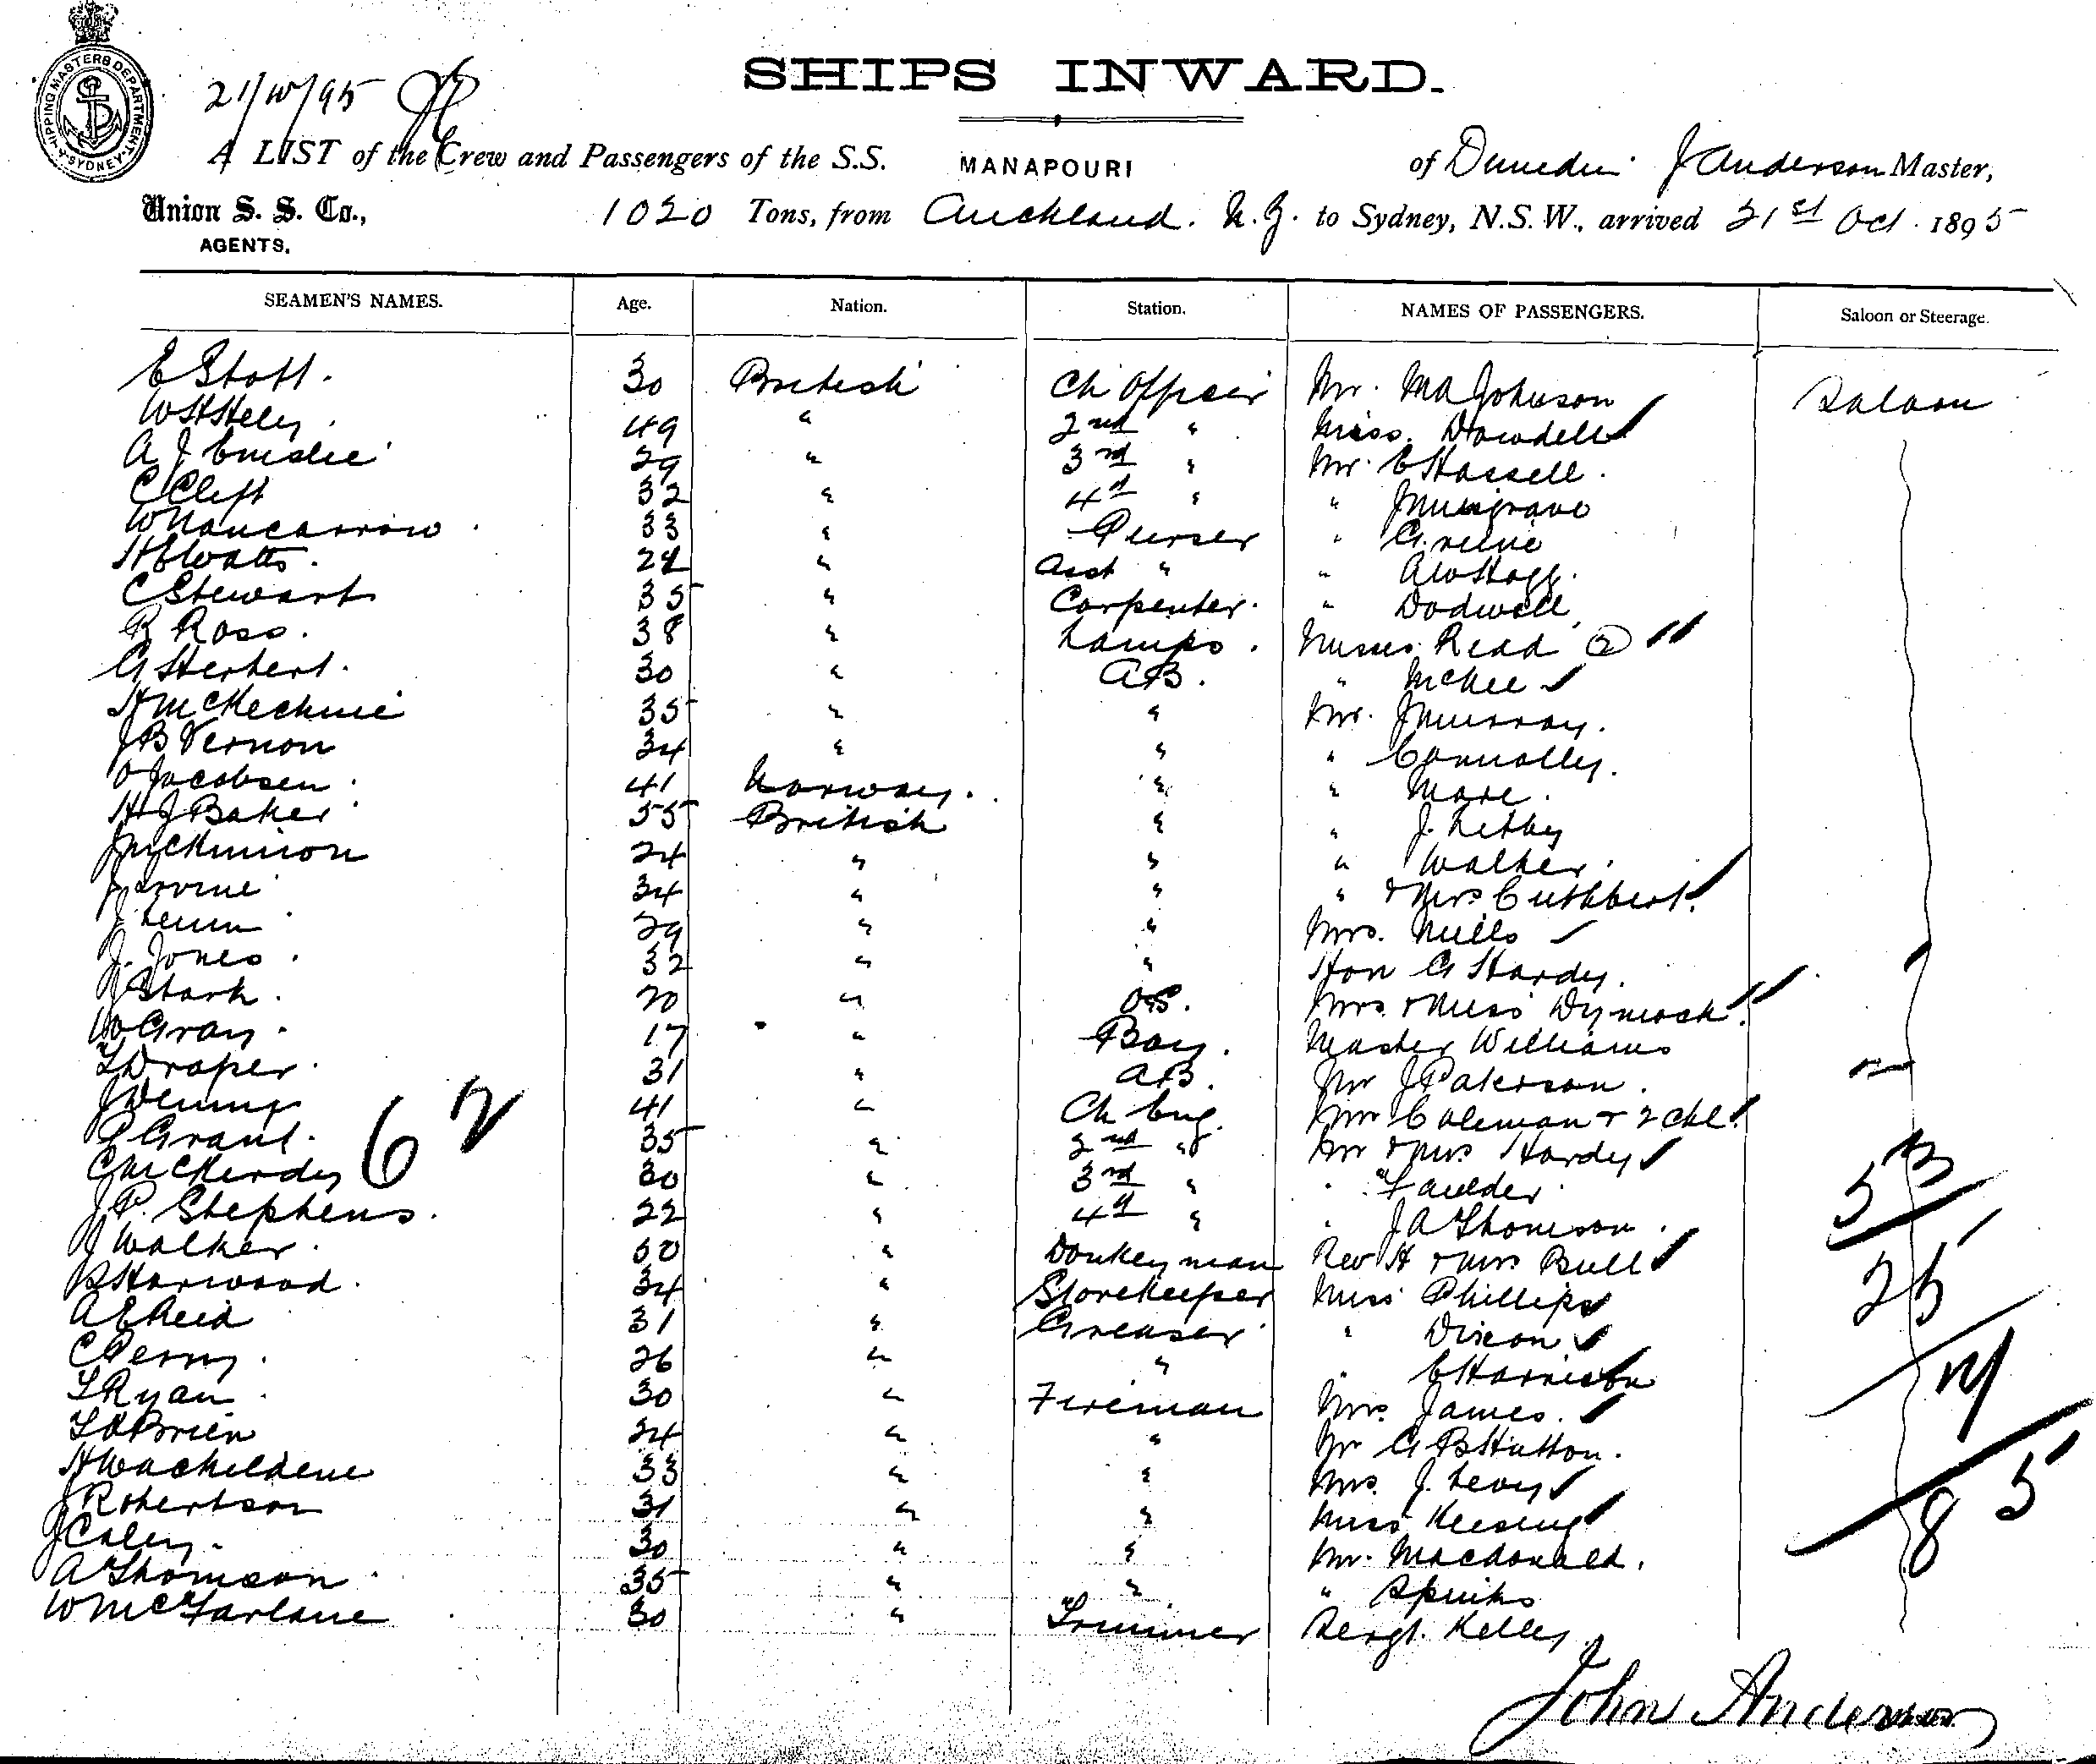 SHIPPING MASTERS DEPARTMENT SYDNEY
21/10/95
SHIPS INWARD.
A LIST of the Crew and Passengers of the S.S. MANAPOURI of Dunedin J Anderson Master,
Union S. S. Co., 1020 Tons, from Auckland. N.Z. to Sydney, N.S.W., arrived 21st Oct. 1895
AGENTS.
SEAMEN'S NAMES. Age. Nation. Station. NAMES OF PASSENGERS. Saloon or Steerage.
E Stott. 30 British Ch Officer Mr. MA Johnson Saloon
WH Hely 49 " 2nd " Miss. Dowdell
A J Emslie 29 " 3rd " Mr. C Hassell.
C Clift 32 " 4th " " J Musgrave
W Nancarrow 33 " Purser " Greene
H E Watts. 24 " Asst " " AW Hogg.
C Stewart 35 " Carpenter. " Dodwell
R Ross. 38 " Lamps. Misses Read 2
G Herbert. 30 " AB. " McKee
H McKechnie 35 " " Mr. J Murray.
J B Vernon 34 " " " Connolly.
O Jacobsen. 41 Norway. " " More.
H J Baker 55 British " " J. Letby
J McKinnon 24 " " " Walker.
J Irvine 34 " " " & Mrs Cuthbert.
J 29 " " Mrs. Mills
J. Jones. 32 " " Hon G Hardy.
J Stark. 20 " OS. Mrs & Miss Dymock.
W Gray. 17 " Boy. Master Williams
T Draper. 31 " AB. Mr J Paterson.
J 41 " Ch Eng. Mrs Coleman & 2 Chl.
P Grant. 35 " 2nd " Mr & Mrs Hardy
C McKerdy 30 " 3rd " " Faulder
62
J P. Stephens. 22 " 4th " " J A Thomson.
J Walker. 50 " Donkeyman Rev H & Mrs Bull
B Harwood. 34 " Storekeeper Miss Phillips
A E Reid 31 " Greaser " Dixon
C Perry. 26 " " " C Harrison
T Ryan. 30 " Fireman Mrs. James.
T O'Brien 24 " " Mr G B Hutton.
H 33 " " Mrs. J. Levy
J Robertson 31 " " Miss Keesing
J Coley. 30 " " Mr. Macdonald.
A Thomson 35 " " " Spinks
W McFarlane 30 " Trimmer Sergt. Kelly
25
8 5
John Anderson